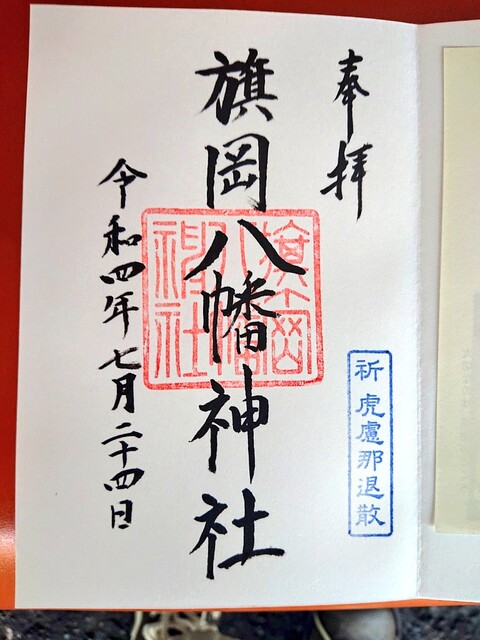 奉拝
祈虎慮那退散
旗岡八幡神社
旗岡
八幡
神社
令和四年七月二十四日